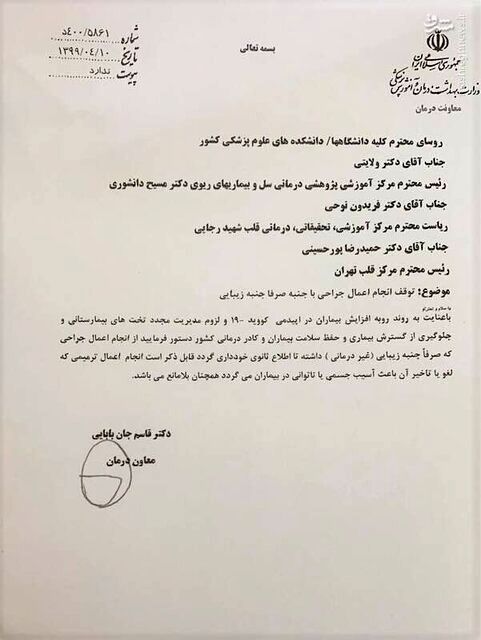 بسمه تعالی
شماره ۴۰۰/۵۸۶۱د
تاریخ ۱۳۹۹/۰۴/۱۰
پیوست ندارد
مشرق
mashreghnews.ir
جمهوری اسلامی ایران
وزارت بهداشت، درمان و آموزش پزشکی
معاونت درمان
روسای محترم کلیه دانشگاهها/ دانشکده های علوم پزشکی کشور
جناب آقای دکتر ولایتی
رئیس محترم مرکز آموزشی پژوهشی درمانی سل و بیماریهای ریوی دکتر مسیح دانشوری
جناب آقای دکتر فریدون نوحی
ریاست محترم مرکز آموزشی، تحقیقاتی، درمانی قلب شهید رجایی
جناب آقای دکتر حمیدرضا پورحسینی
رئیس محترم مرکز قلب تهران
موضوع: توقف انجام اعمال جراحی با جنبه صرفا جنبه زیبایی
با سلام و احترام
باعنایت به روند روبه افزایش بیماران در اپیدمی کووید -۱۹ و لزوم مدیریت مجدد تخت های بیمارستانی و
جلوگیری از گسترش بیماری و حفظ سلامت بیماران و کادر درمانی کشور دستور فرمایید از انجام اعمال جراحی
که صرفاً جنبه زیبایی (غیر درمانی) داشته تا اطلاع ثانوی خودداری گردد قابل ذکر است انجام اعمال ترمیمی که
لغو یا تاخیر آن باعث آسیب جسمی یا ناتوانی در بیماران می گردد همچنان بلامانع می باشد.
دکتر قاسم جان بابایی
معاون درمان